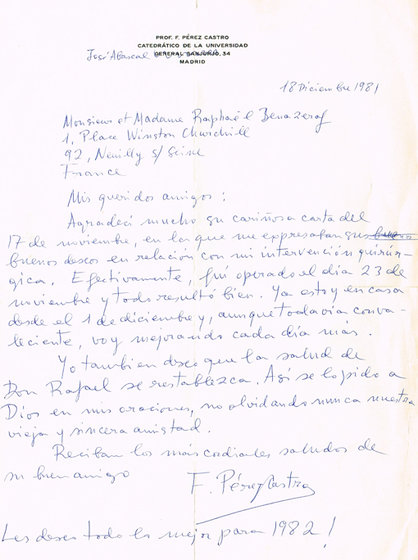 PROF. F. PÉREZ CASTRO
CATEDRÁTICO DE LA UNIVERSIDAD
José Abascal
GENERAL SANJURJO, 34
MADRID
18 Diciembre 1981
Monsieur et Madame Raphaël Benazeraf
1, Place Winston Churchill
92, Neuilly s/ Seine
France
Mis queridos amigos:
Agradecí mucho su cariñosa carta del
17 de noviembre, en la que me expresaban sus
buenos deseos en relación con mi intervención quirúr-
gica. Efectivamente, fuí operado el día 23 de
noviembre y todo resultó bien. Ya estoy en casa
desde el 1 de diciembre y, aunque todavía conva-
leciente, voy mejorando cada día mas.
Yo tambien deseo que la salud de
Don Rafael se restablezca. Así se lo pido a
Dios en mis oraciones, no olvidando nunca nuestra
vieja y sincera amistad.
Reciban los más cordiales saludos de
su buen amigo
F. Pérez Castro
Les deseo todo lo mejor para 1982!